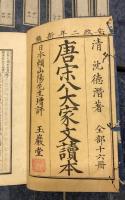 安政二年新鐫
清 沈德潛著 全部十六冊
唐宋八大家文讀本
日本賴山陽先生增評 玉巖堂